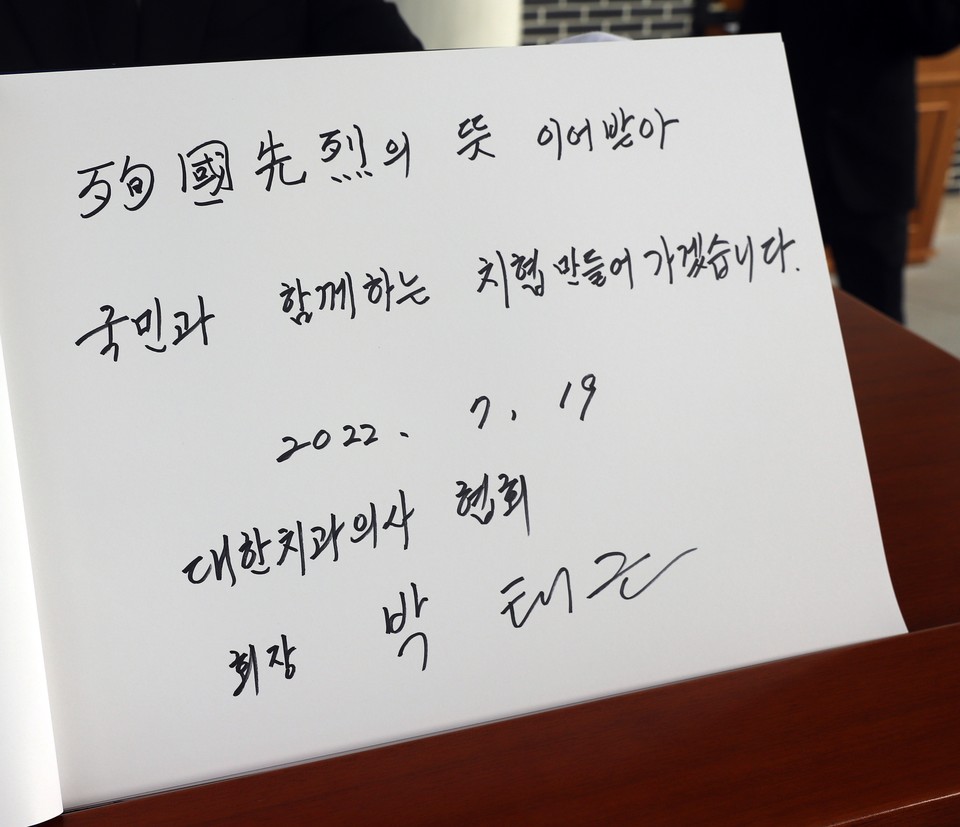 殉國先烈의 뜻 이어받아
국민과 함께하는 치협 만들어 가겠습니다.
2022. 7. 19
대한치과의사 협회
회장 박 태근